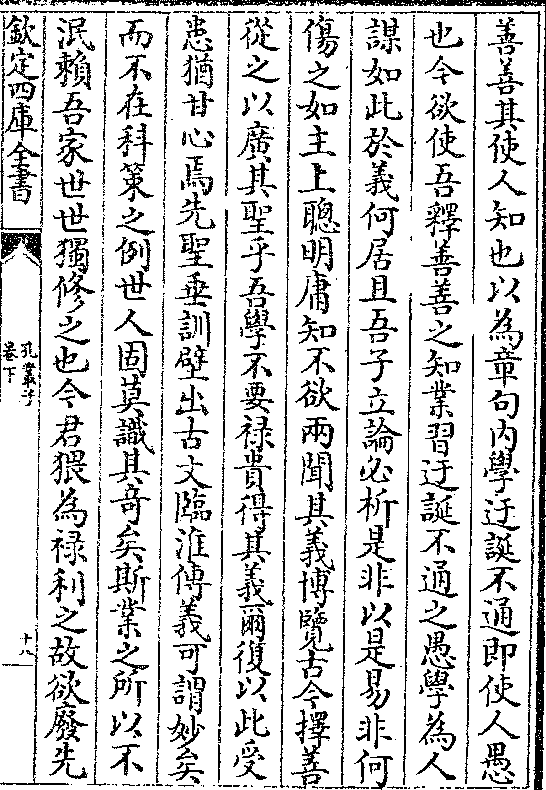 善善其使人知也以為章句內學迂誕不通即使人愚
也今欲使吾釋善善之知業習迂誕不通之愚學為人
謀如此於義何居且吾子立論必析是非以是易非何
傷之如主上聰明庸知不欲兩聞其義博覽古今擇善
從之以廣其聖乎吾學不要祿貴得其義爾復以此受
患猶甘心焉先聖垂訓壁出古文臨淮傳義可謂妙矣
而不在科策之例世人固莫識其奇矣斯業之所以不
泯賴吾家世世獨修之也今君猥為祿利之故欲廢先
欽定四庫全書
孔叢子
卷下
十八